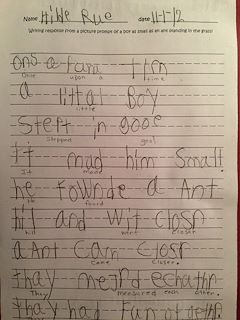 Name date 11-1-12
Writing response from a picture prompt of a boy as small as an ant standing in the grass!
ons a tam tim
Once upon a time
a littal Boy
little
Stept in gooe
Stepped goo
It mad him Small.
It made
he fownde a Ant
found
hil and wit closr
hill went closer
a Ant Cam Closr
Came Closer.
thay meard echathr
They measured each other.
thay had fun